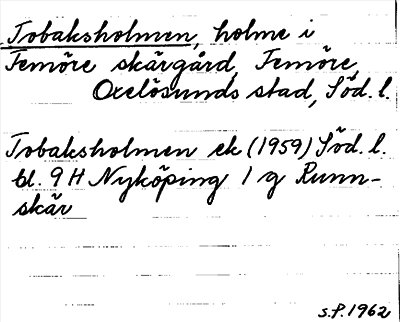 Tobaksholmen, holme i
Femöre skärgård, Femöre,
Oxelösunds stad, Söd. l.
Tobaksholmen ek (1959) Söd. l.
bl. 9 H Nyköping 1 g Runn-
skär
S.P. 1962